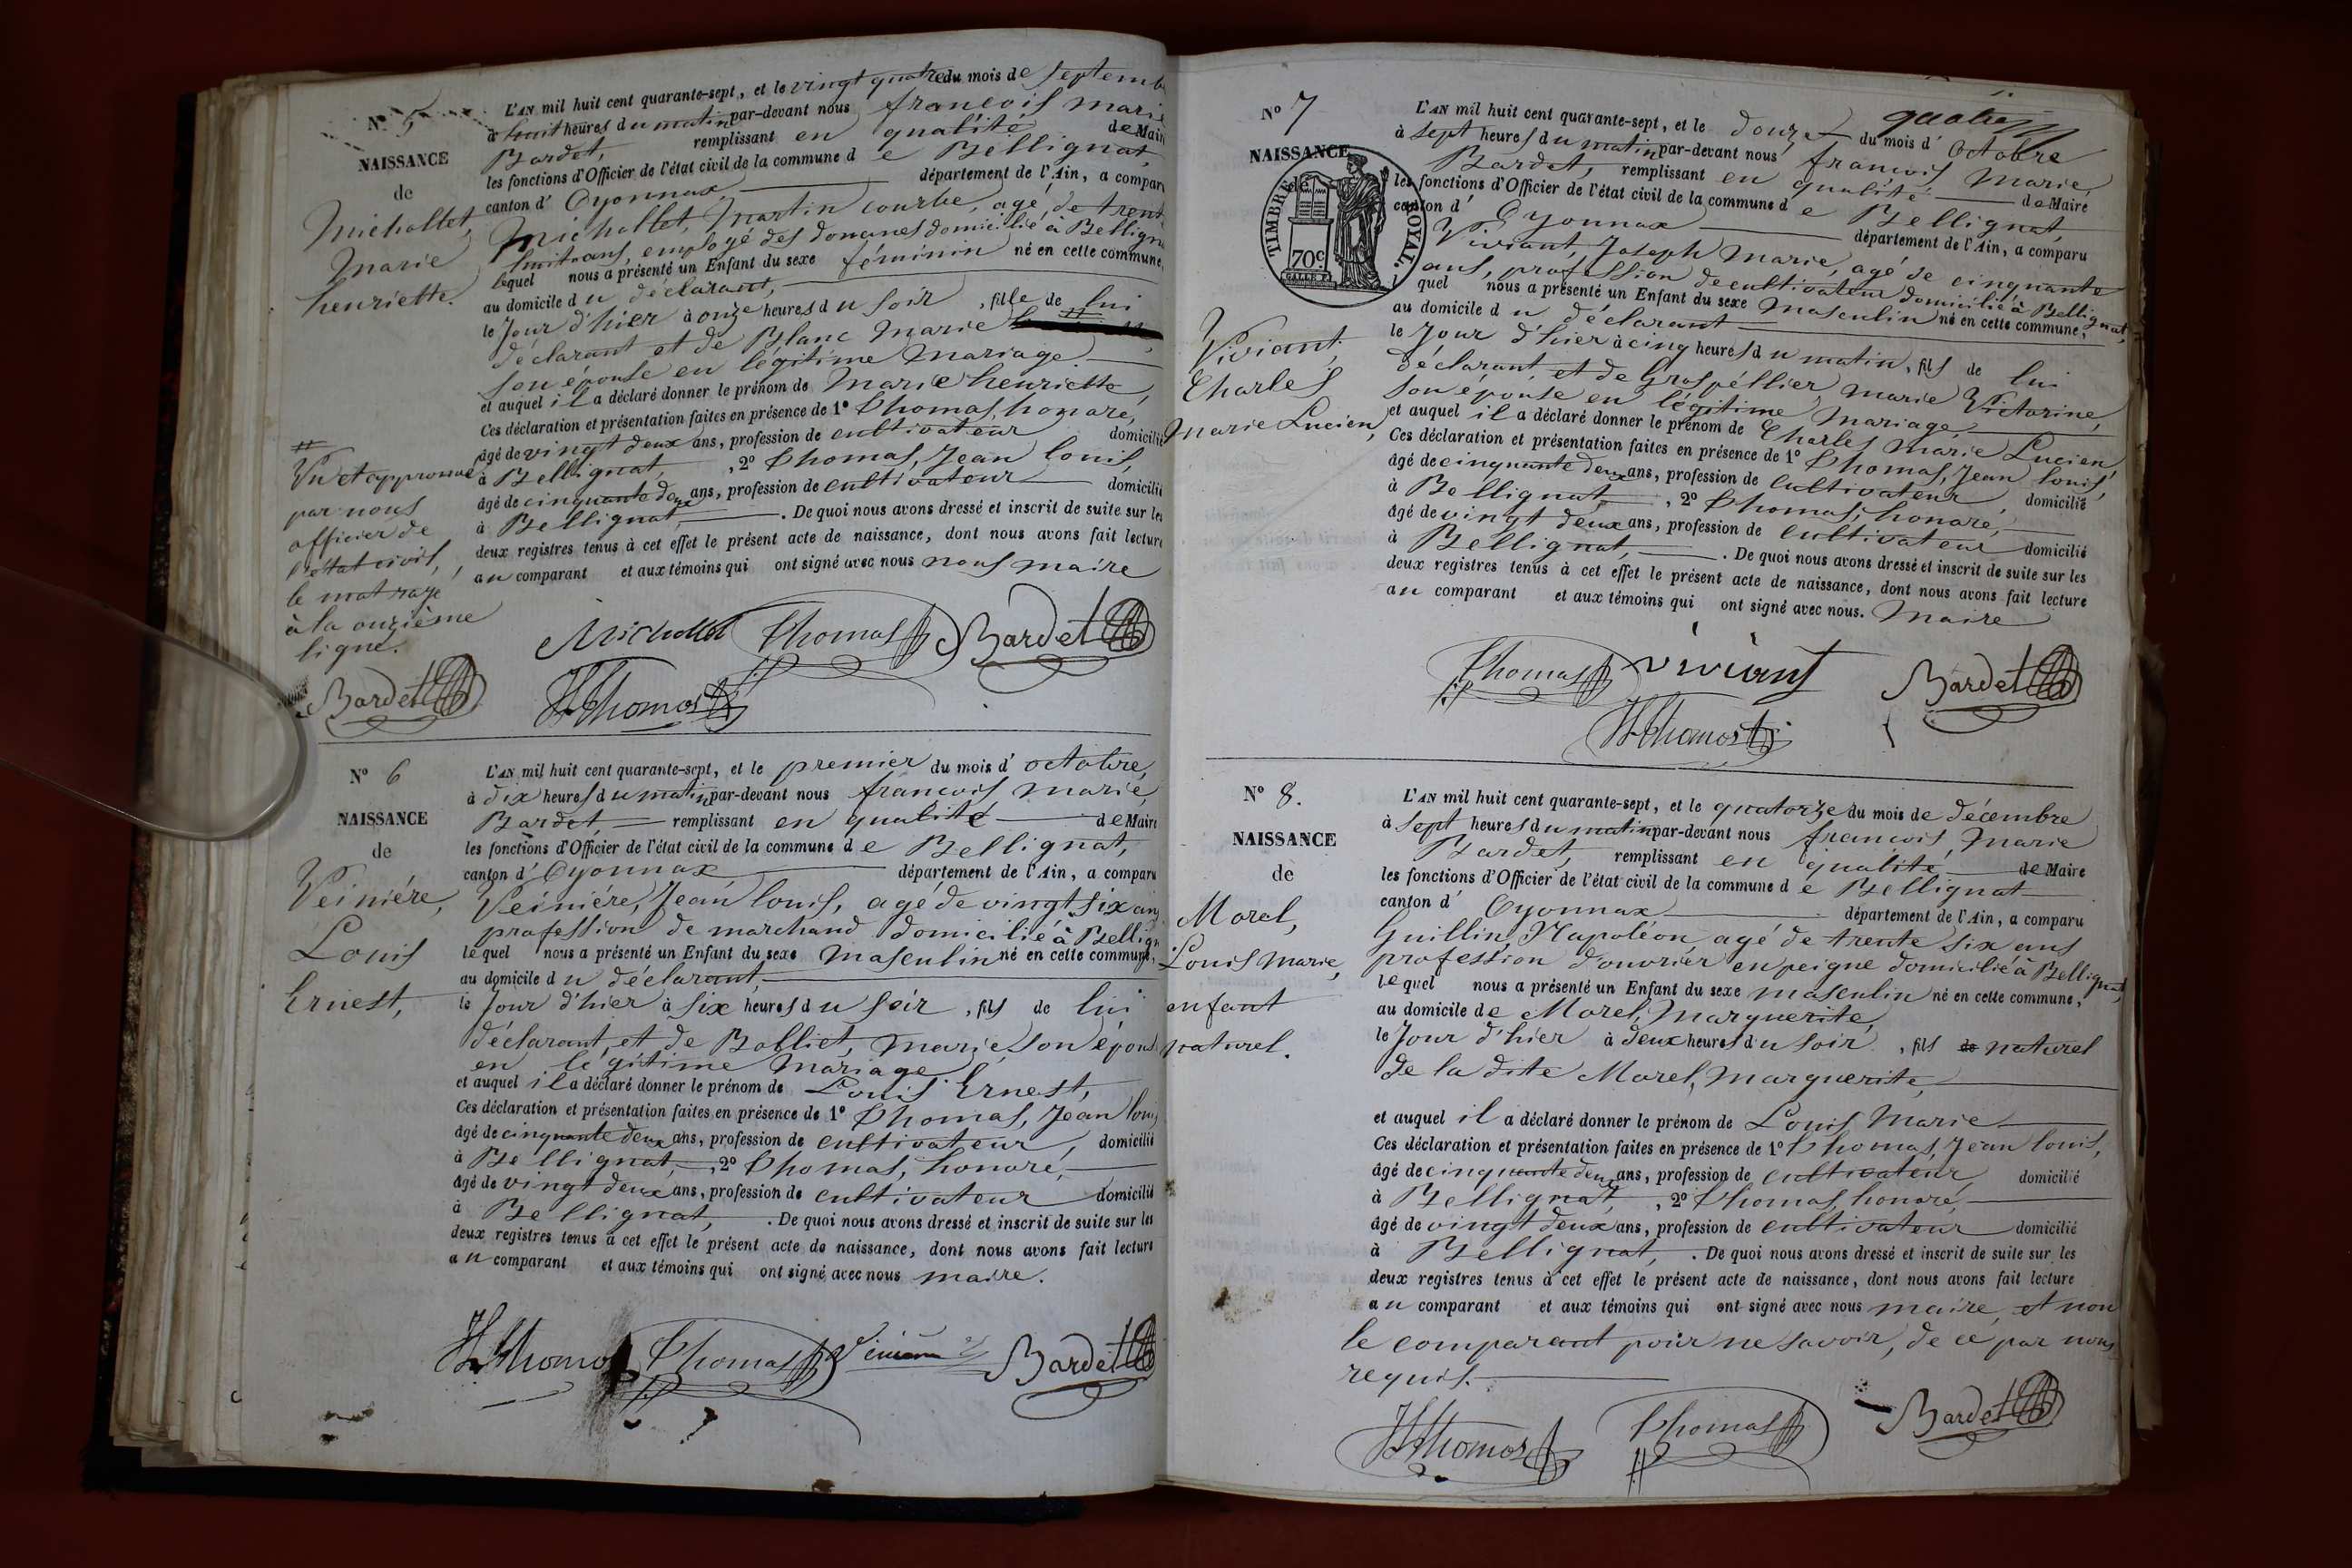 N° 5
NAISSANCE
de
Michollet,
Marie
henriette.
L'AN mil huit cent quarante-sept, et le vingt quatre du mois de septemb
à huit heures du matin par-devant nous françois marie
Bardet, remplissant en qualité de Mair
les fonctions d'Officier de l'état civil de la commune de Bellignat,
canton d' Oyonnax département de l'Ain, a compar
Michollet, Martin courbe, agé de trent
huit ans, employé des douanes domicilié à Bellign
lequel nous a présenté un Enfant du sexe féminin né en cette commune,
au domicile du déclarant,
le Jour d'hier à onze heures du soir, fille de lui
déclarant et de Blanc Marie
son épouse en légitime mariage
et auquel il a déclaré donner le prénom de Marie henriette,
Ces déclaration et présentation faites en présence de 1° Thomas, honoré,
âgé de vingt deux ans, profession de cultivateur domicilié
à Bellignat, , 2° Thomas, Jean louis,
âgé de cinquante deux ans, profession de cultivateur domicilié
à Bellignat, . De quoi nous avons dressé et inscrit de suite sur les
deux registres tenus à cet effet le présent acte de naissance, dont nous avons fait lecture
au comparant et aux témoins qui ont signé avec nous nous maire
Vu et approuvé
par nous
officier de
l'état civil,
le mot rayé
à la onzième
ligne.
Bardet
Michollet Thomas Bardet
H Thomas
N° 6
NAISSANCE
de
Veiniére,
Louis
Ernest,
L'AN mil huit cent quarante-sept, et le premier du mois d' octobre,
à dix heures du matin par-devant nous françois marie,
Bardet, remplissant en qualité de Maire
les fonctions d'Officier de l'état civil de la commune de Bellignat,
canton d' Oyonnax département de l'Ain, a comparu
Veiniére, Jean louis, agé de vingt six ans
profession de marchand domicilié à Bellign
lequel nous a présenté un Enfant du sexe masculin né en cette commune,
au domicile du déclarant,
le Jour d'hier à six heures du soir, fils de lui
déclarant, et de Bolliet, Marie, son épous
en légitime mariage
et auquel il a déclaré donner le prénom de Louis Ernest,
Ces déclaration et présentation faites en présence de 1° Thomas, Jean louis
âgé de cinquante deux ans, profession de cultivateur, domicilié
à Bellignat, , 2° Thomas, honoré,
âgé de vingt deux ans, profession de cultivateur domicilié
à Bellignat, . De quoi nous avons dressé et inscrit de suite sur les
deux registres tenus à cet effet le présent acte de naissance, dont nous avons fait lecture
au comparant et aux témoins qui ont signé avec nous maire.
H Thomas Thomas Bardet
quatre
N° 7
NAISSANCE
de
TIMBRE ROYAL.
70c
Viviant,
Charles
Marie Lucien,
L'AN mil huit cent quarante-sept, et le douze du mois d' Octobre
à sept heures du matin par-devant nous françois Marie,
Bardet, remplissant en qualité de Maire
les fonctions d'Officier de l'état civil de la commune de Bellignat,
canton d' Oyonnax département de l'Ain, a comparu
Viviant, Joseph Marie, agé de cinquante
ans, profession de cultivateur domicilié à Bellignat,
quel nous a présenté un Enfant du sexe masculin né en cette commune,
au domicile du déclarant
le Jour d'hier à cinq heures du matin, fils de lui
déclarant, et de Grospéllier, Marie Victorine,
son épouse en légitime mariage
et auquel il a déclaré donner le prénom de Charles Marie Lucien,
Ces déclaration et présentation faites en présence de 1° Thomas, Jean louis,
âgé de cinquante deux ans, profession de cultivateur, domicilié
à Bellignat, , 2° Thomas, honoré,
âgé de vingt deux ans, profession de cultivateur domicilié
à Bellignat, . De quoi nous avons dressé et inscrit de suite sur les
deux registres tenus à cet effet le présent acte de naissance, dont nous avons fait lecture
au comparant et aux témoins qui ont signé avec nous. Maire
Thomas viviant Bardet
H Thomas
N° 8.
NAISSANCE
de
Morel,
Louis Marie,
enfant
naturel.
L'AN mil huit cent quarante-sept, et le quatorze du mois de décembre
à sept heures du matin par-devant nous françois, Marie
Bardet, remplissant en qualité de Maire
les fonctions d'Officier de l'état civil de la commune de Bellignat
canton d' Oyonnax département de l'Ain, a comparu
Guillin, Napoléon, agé de trente six ans
profession d'ouvrier en peigne domicilié à Bellignat,
lequel nous a présenté un Enfant du sexe masculin né en cette commune,
au domicile de Morel, Marguerite,
le Jour d'hier à deux heures du soir, fils de naturel
de la dite Morel, Marguerite,
et auquel il a déclaré donner le prénom de Louis Marie
Ces déclaration et présentation faites en présence de 1° Thomas, Jean louis,
âgé de cinquante deux ans, profession de cultivateur, domicilié
à Bellignat, , 2° Thomas, honoré,
âgé de vingt deux ans, profession de cultivateur domicilié
à Bellignat, . De quoi nous avons dressé et inscrit de suite sur les
deux registres tenus à cet effet le présent acte de naissance, dont nous avons fait lecture
au comparant et aux témoins qui ont signé avec nous maire, et non
le comparant pour ne savoir, de ce par nous
requis.
H Thomas Thomas Bardet